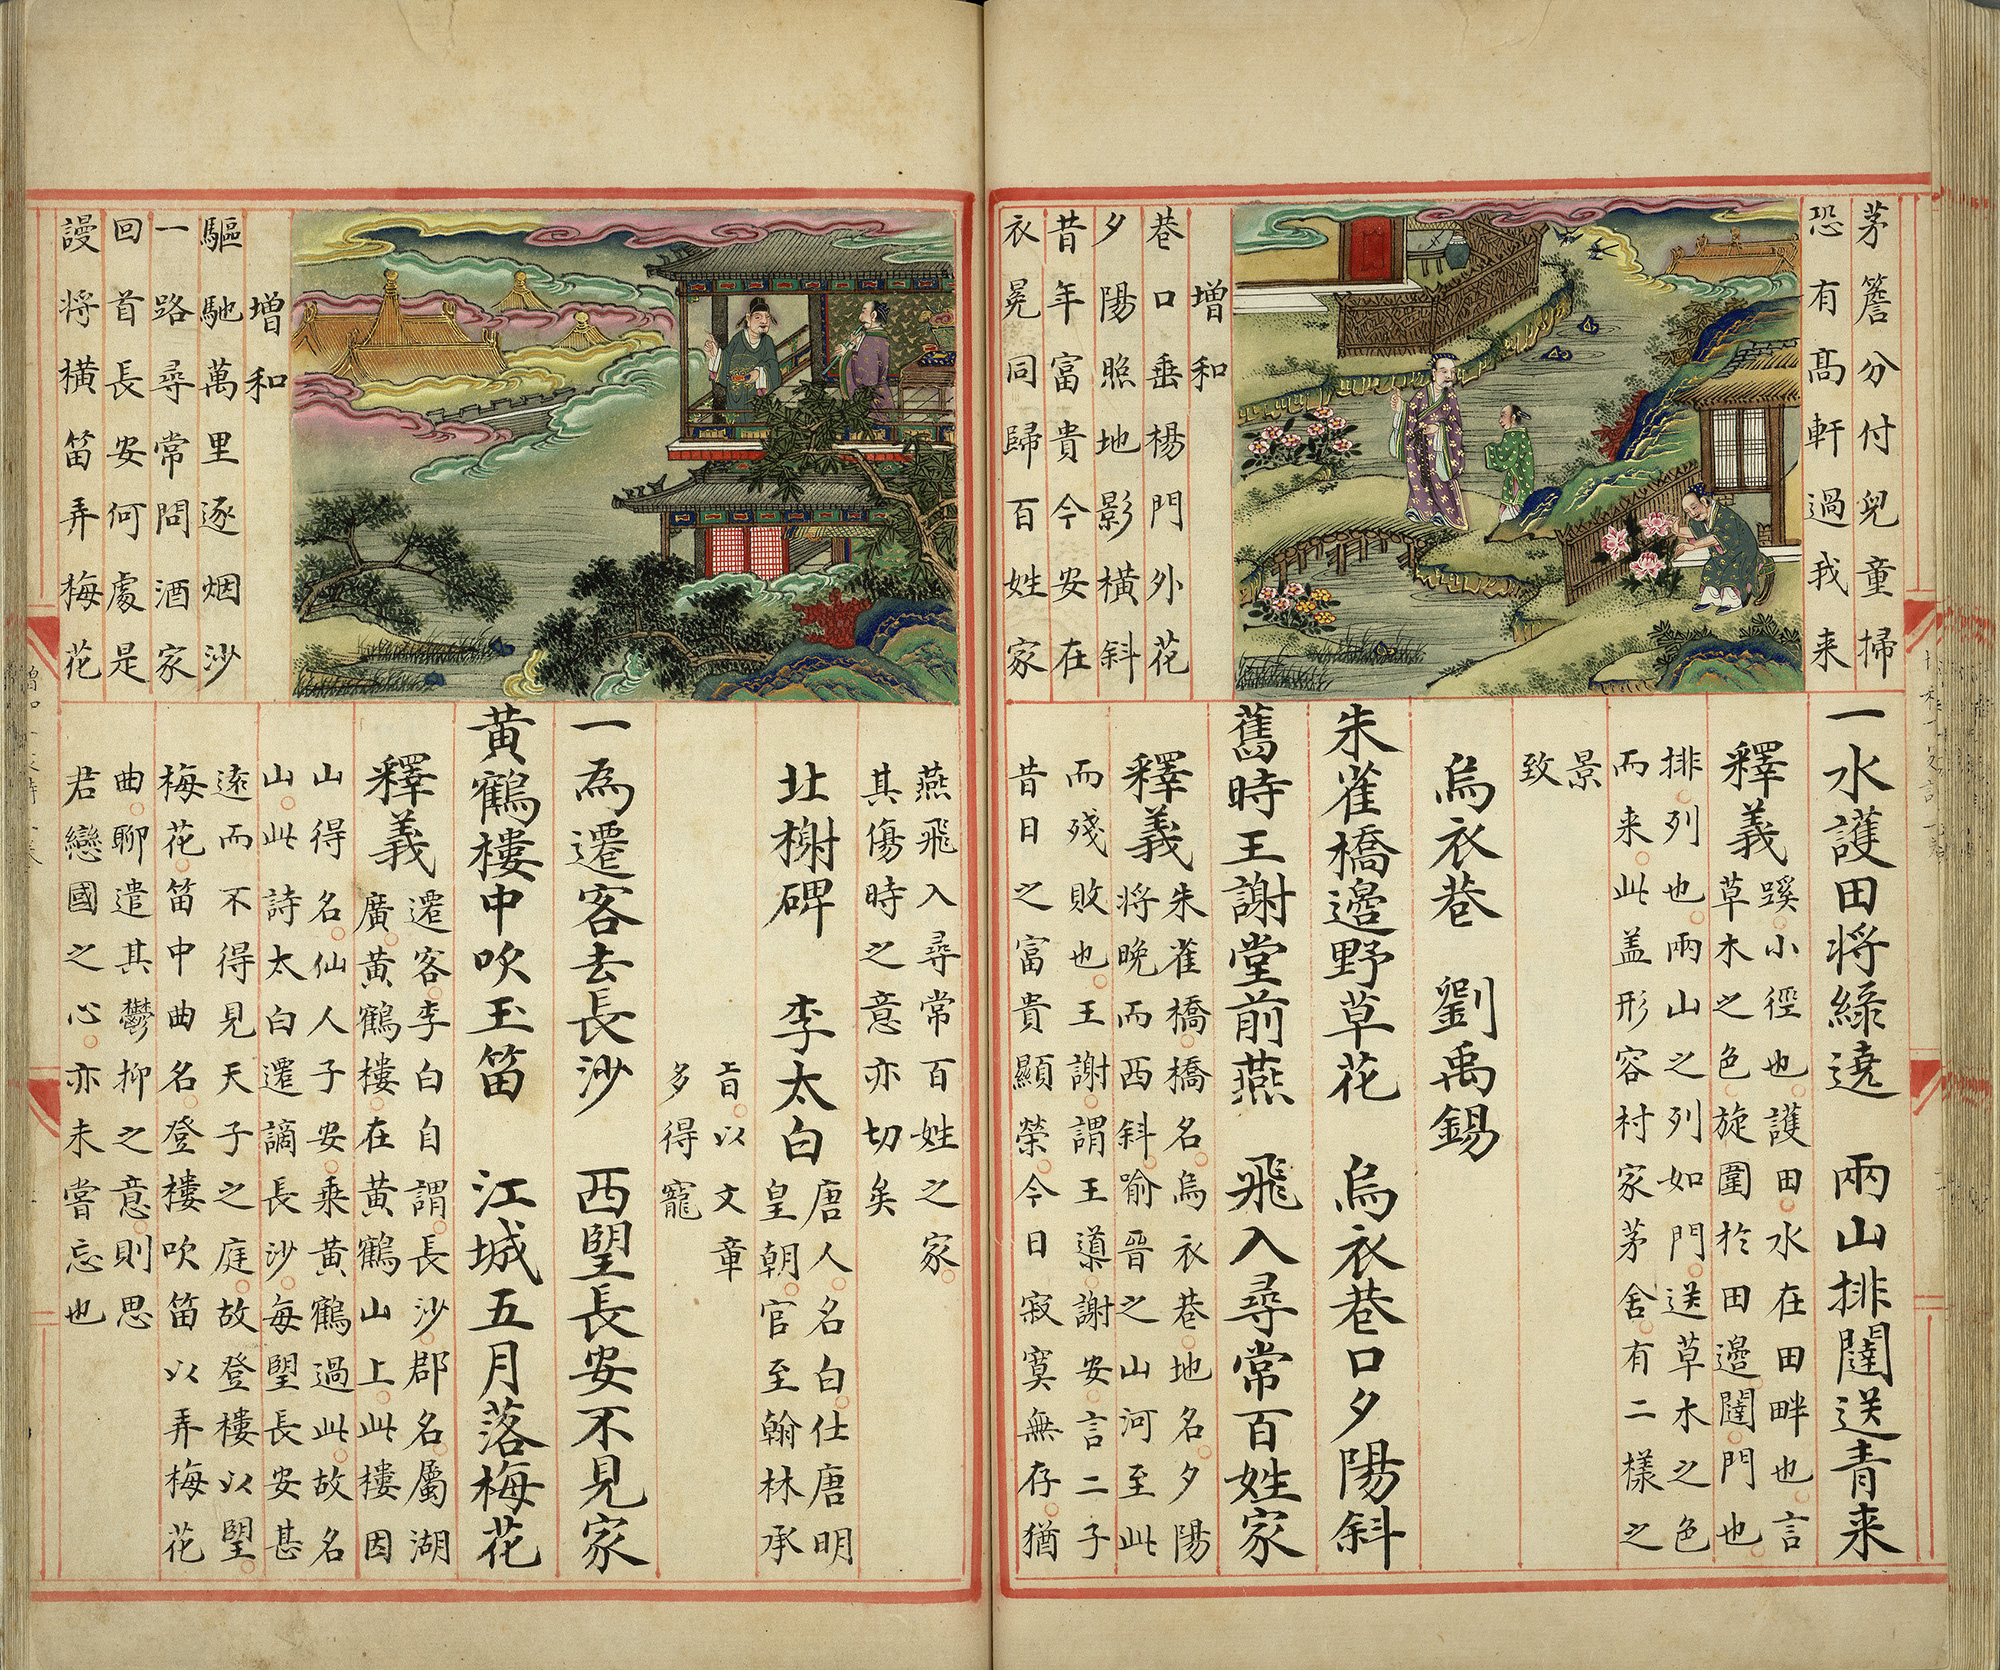 茅簷分付兒童掃
恐有高軒過我来
增和
巷口垂楊門外花
夕陽照地影橫斜
昔年富貴今安在
衣晃同歸百姓家
一水護田将綠遶　兩山排闥送青来
釋義
蹊。小徑也。護田。水在田畔也。言
草木之色。旋圍於田邊。闥。門也。
排。列也。兩山之列如門。送草木之色
而来。此盖形容村家茅舍。有二樣之
景
致
烏衣巷　劉禹錫
朱雀橋邊野草花　烏衣巷口夕陽斜
舊時王謝堂前燕　飛入尋常百姓家
釋義
朱雀橋。橋名。烏衣巷。地名。夕陽
将晚而西斜。喻晉之山河至此
而殘敗也。王謝。謂王導。謝安。言二子
昔日之富貴顯榮。今日寂寞無存。猶
增和
驅馳萬里逐烟沙
一路尋常問酒家
回首長安何處是
謾将橫笛弄梅花
燕飛入尋常百姓之家。
其傷時之意亦切矣
北榭碑　李太白
唐人。名白。仕唐明
皇朝。官至翰林承
旨。以文章
多得寵
一為遷客去長沙　西望長安不見家
黃鶴樓中吹玉笛　江城五月落梅花
釋義
遷客。李白自謂。長沙。郡名。屬湖
廣。黃鶴樓。在黃鶴山上。此樓因
山得名。仙人子安。乘黃鶴過此。故名
山。此詩太白遷謫長沙。每望長安甚
遠而不得見天子之庭。故登樓以望。
梅花。笛中曲名。登樓吹笛以弄梅花
曲。聊遣其鬱抑之意。則思
君戀國之心。亦未嘗忘也